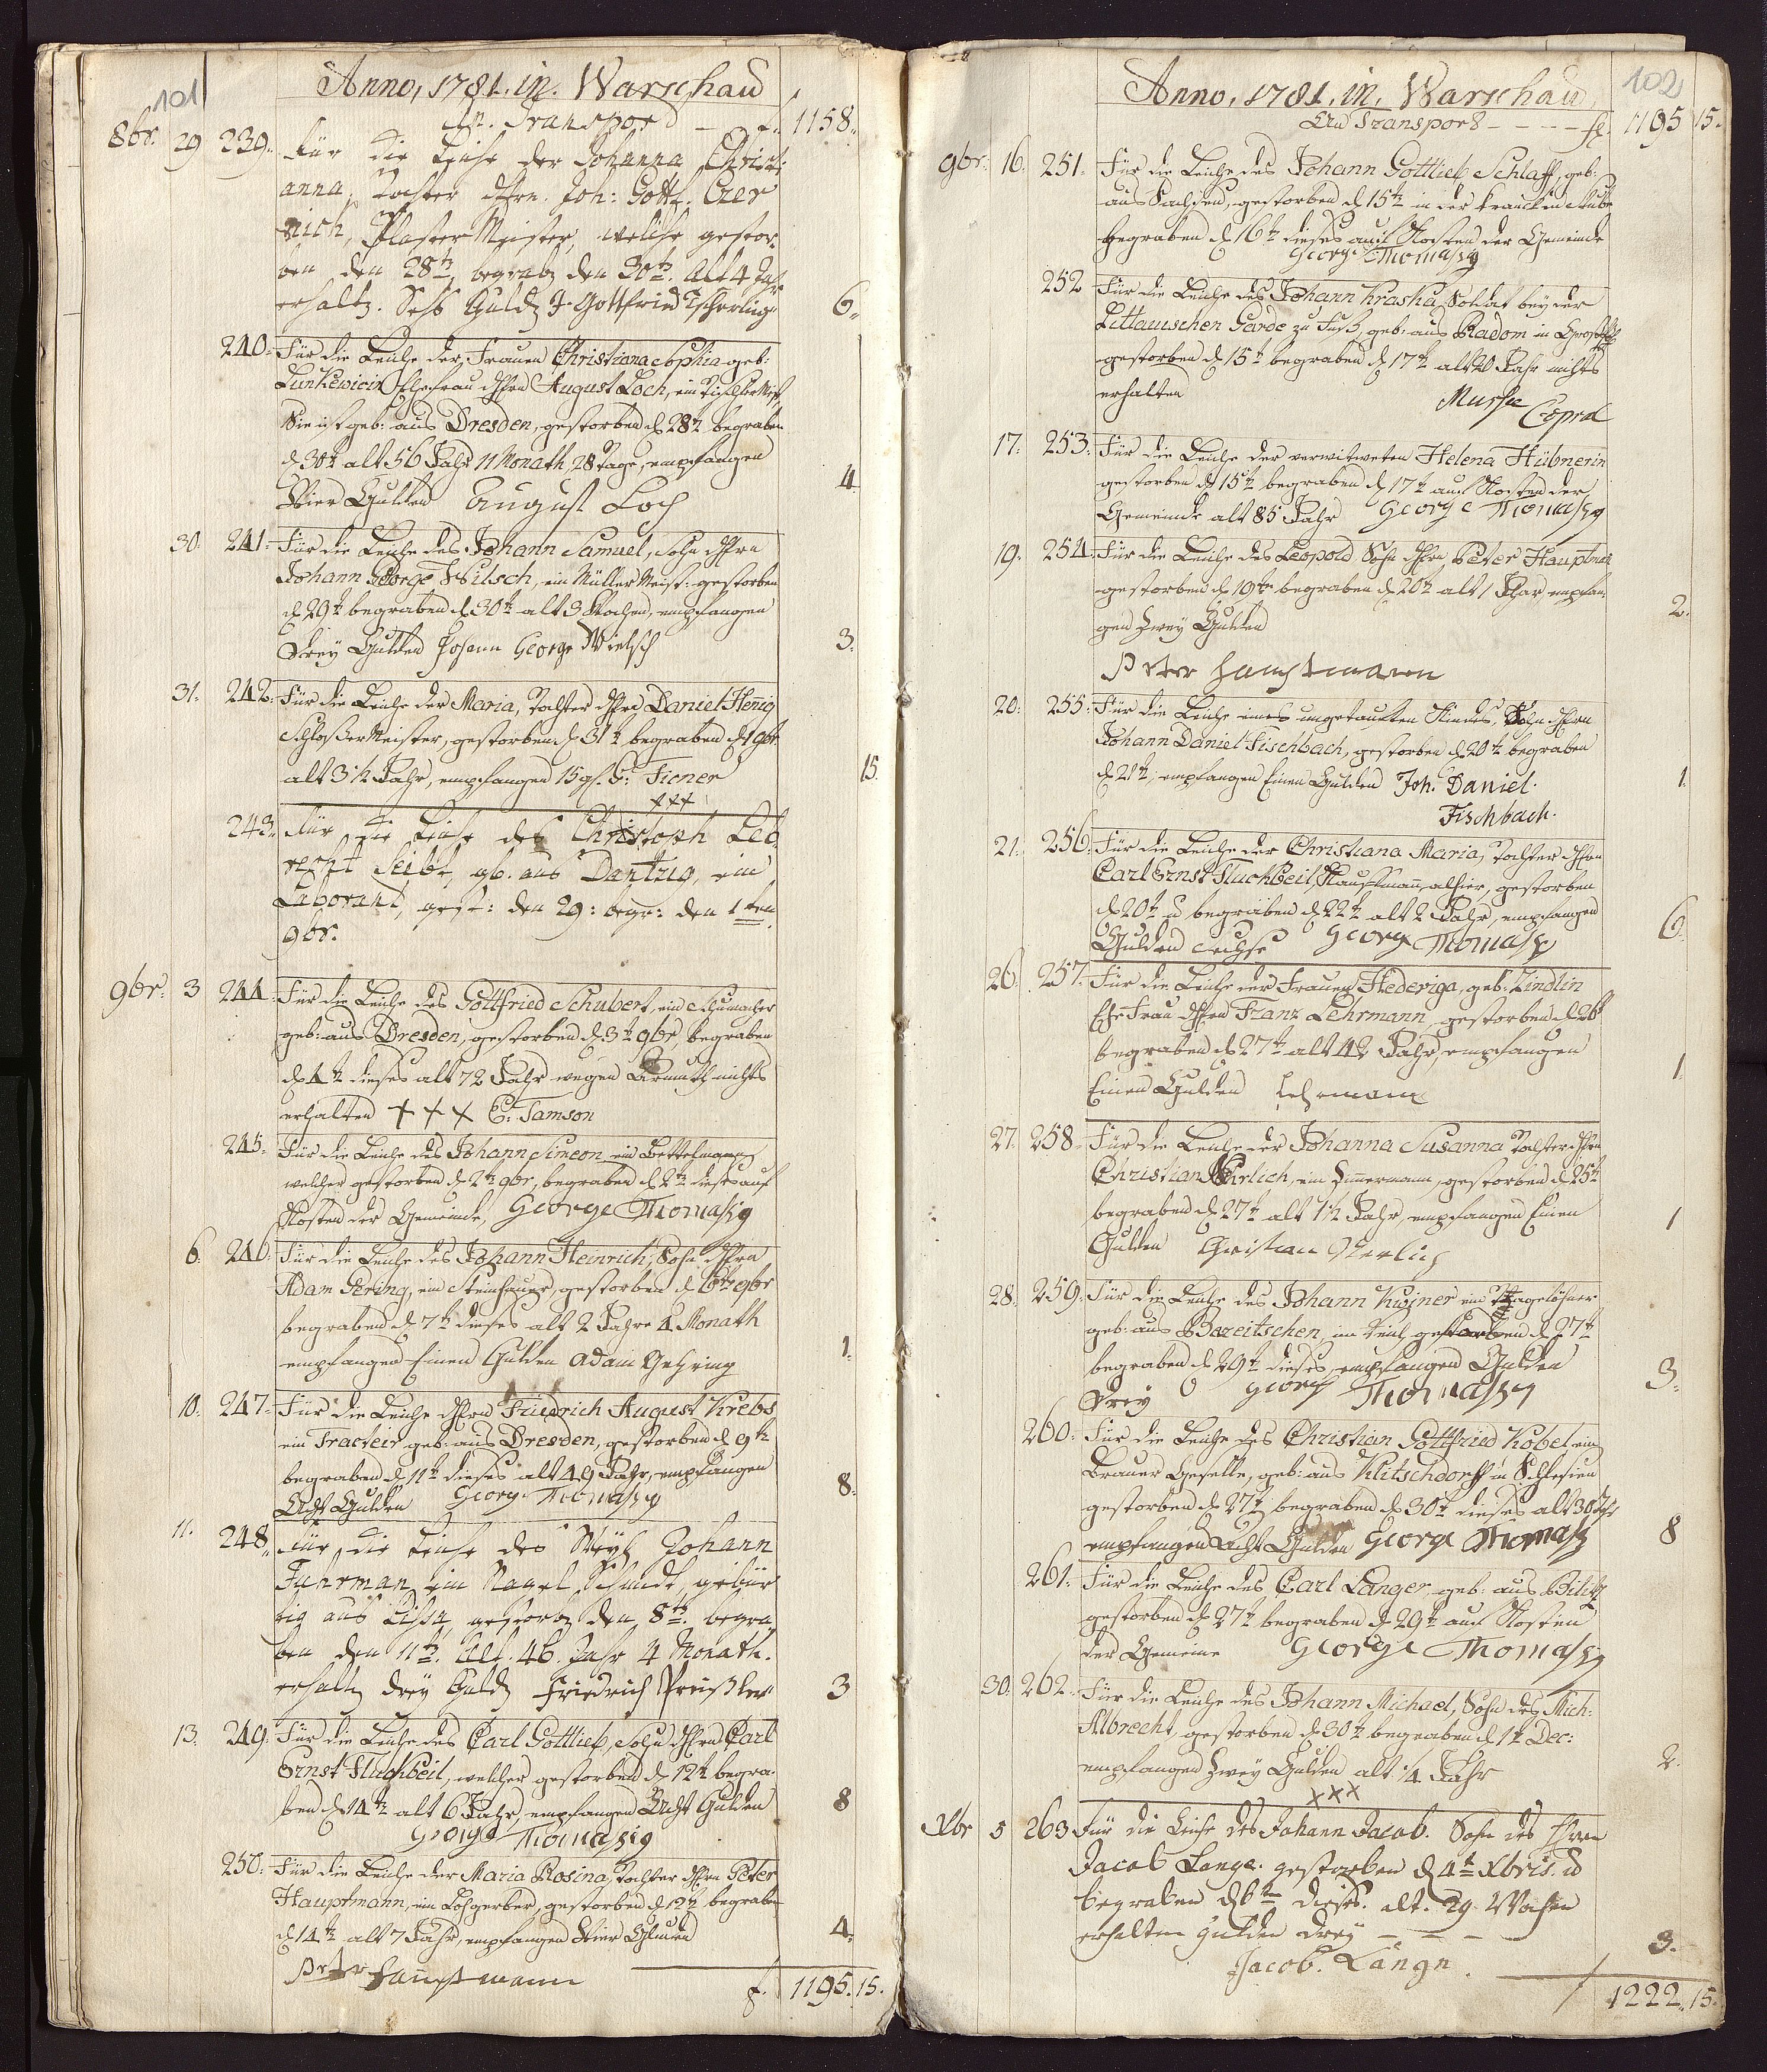 101
Anno, 1781. in. Warschau
Transpord f. 1158.
8br. 29 239. Für die Leiche der Johanna Christi
anna, Tochter Joh: Gottf. Czer
nich, Meister, welche gestor,
ben den 28ten begrab den 30ten. Alt 4 Jahr
erhaltn. Sechs Guldn J. Gottfried 6.
240. Für die Leiche der Frauen Christiana Sophia geb:
Ehefrau August Loch, ein
Sie ist geb: aus Dresden, gestorben d 28t begraben
d 30t alt 56 Jahr 11 Monath 28 Tage, empfangen
Vier Gulden August Loch 4.
30. 241. Für die Leiche des Johann Samuel, Sohn
Johann George Wilsch, ein Müller Meist: gestorben
d 29t begraben d 30t alt 3 Wochen, empfangen
Drey Gulden Johann George Wielsch 3.
31. 242. Für die Leiche der Maria, Tochter Daniel Hennig
Schloßer Meister, gestorben d 31t begraben d 1 9br
alt 3½ Jahr, empfangen 15 gl. Ficner 15.
+++
243. Für die Leiche des Christoph Leb,
recht Seibt, gb. aus Dantzig, ein
Laborant, gest: den 29: begr: den 1ten
9br.
9br. 3 244. Für die Leiche des Gottfried Schubert, ein Schumacher
geb: aus Dresden, gestorben d 3t 9br, begraben
d 4t dieses alt 72 Jahr wegen Armuth nichts
erhalten +++ C: Tamson
245. Für die Leiche des Johann Simeon ein Bettelmann
welcher gestorben d 2t 9br, begraben d 2t dieses auf
Kosten der Gemeinde, George Thomaßig
6. 246. Für die Leiche des Johann Heinrich, Sohn
Adam Gering, ein Steinhauer, gestorben d 6t 9br
begraben d 7t dieses alt 2 Jahre 4 Monath
empfangen Einen Gulden Adam Gehring 1.
10. 247. Für die Leiche Friedrich August Krebs
ein Tracteir geb: aus Dresden, gestorben d 9t
begraben d 11t dieses alt 49 Jahr, empfangen
Acht Gulden Georg Thomaßig 8.
11. 248. Für die Leiche des Johann
Fuhrman ein Nagel Schmidt, gebür
tig aus Lissa, gestorbn den 8ten. begra,
ben den 11ten. Alt. 46. Jahr 4 Monath.
erhaltn drey Guldn Friedrich Preißler 3
13. 249. Für die Leiche des Carl Gottlieb, Sohn Carl
Ernst Fluchbeil, welcher gestorben d 12t begra:
ben d 14t alt 6 Jahr, empfangen Acht Gulden 8
George Thomaßig
250. Für die Leiche der Maria Rosina, Tochter Peter
Hauptmann, ein Lohgerber, gestorben d 12t begraben
d 14t alt 7 Jahr, empfangen Vier Gulden 4.
Peter Hauptmann f. 1195. 15.
102
Anno, 1781. in. Warschau
Transport - - - - fl. 1195 15.
9br. 16. 251. Für die Leiche des Johann Gottlieb Schlaff, geb:
aus Sachsen, gestorben d 15t in der krancken Stube
begraben d 16t dieses auf Kosten der Gemeinde
George Thomaßig
252 Für die Leiche des Johann Kraska, Soldat bey der
Littauischen Garde zu Fuß, geb: aus Radom in
gestorben d 15t begraben d 17t alt 20 Jahr nichts
erhalten Copral
17. 253. Für die Leiche der verwitweten Helena Hübnerin
gestorben d 15t begraben d 17t auf Kosten der
Gemeinde alt 85 Jahr George Thomaßig
19. 254. Für die Leiche des Leopold Sohn Peter Hauptman
gestorben d 19t begraben d 20t alt 1 Jahr, empfan:
gen Zwey Gulden 2.
Peter Hauptmann
20. 255. Für die Leiche eines ungetauften Kindes, Sohn
Johann Daniel Fischbach, gestorben d 20t begraben
d 21t, empfangen Einen Gulden Joh. Daniel. 1.
Fischbach.
21. 256. Für die Leiche der Christiana Maria, Tochter
Carl Ernst Fluchbeil, Kaufmann alhier, gestorben
d 20t u begraben d 22t alt 2 Jahr, empfangen
Gulden sechse Georg Thomaßig 6.
26. 257. Für die Leiche der Frauen Hederiga, geb: Lindlin
Ehe Frau Franz Lehrmann, gestorben d 26t
begraben d 27t alt 42 Jahr, empfangen
Einen Gulden Lehrmann 1.
27. 258. Für die Leiche der Johanna Susanna Tochter
Christian, ein Zimmermann, gestorben d 25t
begraben d 27t alt 1½ Jahr, empfangen Einen
Gulden Christian 1
28. 259. Für die Leiche des Johann Kujner ein Tagelöhner
geb: aus Bazeitschen, im gestorben d 27t
begraben d 29t dieses empfangen Gulden
Drey Georg Thomaßig 3.
260. Für die Leiche des Christian Gottfried Kobel, ein
Brauer Geselle, geb: aus Klitschdorff in Schlesien
gestorben d 27t begraben d 30t dieses alt 30 Jahr
empfangen Acht Gulden George Thomaßig 8
261. Für die Leiche des Carl Langer, geb: aus Bilitz
gestorben d 27t begraben d 29t auf Kosten
der Gemeine George Thomaßig
30. 262. Für die Leiche des Johann Michael, Sohn des Mich:
Albrecht, gestorben d 30t begraben d 1t Dec:
empfangen Zwey Gulden alt ¼ Jahr 2.
xxx
Xbr 5 263 Für die Leiche des Johann Jacob. Sohn des Herrn
Jacob Lange. gestorben d 4t Xbris. u
begraben d 6ten dieses. alt. 29. Wochen
erhalten Gulden drey - - - 3.
Jacob. Längn.
f 1222. 15.